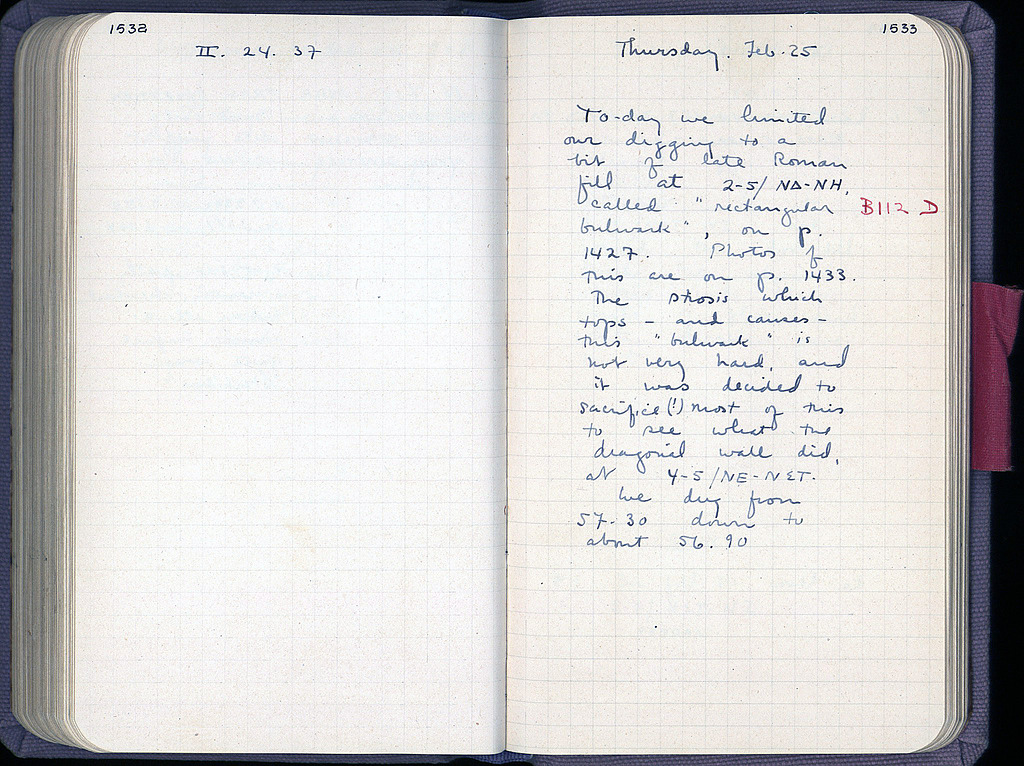 1532
II. 24. 37
1533
Thursday. Feb. 25
To-day we limited
our digging to a
bit of late Roman
fill at 2-5/ΝΔ-ΝΗ,
called "rectangular B112 D
bulwark", on p.
1427. Photos of
this are on p. 1433.
The strosis which
tops - and causes -
this "bulwark" is
not very hard, and
it was decided to
sacrifice (!) most of this
to see what the
diagonal wall did,
at 4-5/ΝΕ-ΝΣΤ.
We dug from
57.30 down to
about 56.90